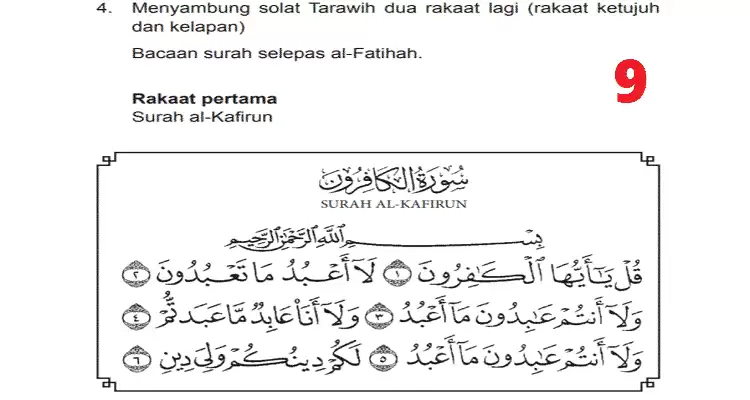 4. Menyambung solat Tarawih dua rakaat lagi (rakaat ketujuh
dan kelapan)
Bacaan surah selepas al-Fatihah.
9
Rakaat pertama
Surah al-Kafirun
سُورَةُ الكَافِرُونَ
SURAH AL-KAFIRUN
بِسْمِ اللَّهِ الرَّحْمَٰنِ الرَّحِيمِ
قُلْ يَٰٓأَيُّهَا ٱلْكَٰفِرُونَ ١ لَآ أَعْبُدُ مَا تَعْبُدُونَ ٢
وَلَآ أَنتُمْ عَٰبِدُونَ مَآ أَعْبُدُ ٣ وَلَآ أَنَا۠ عَابِدٌ مَّا عَبَدتُّمْ ٤
وَلَآ أَنتُمْ عَٰبِدُونَ مَآ أَعْبُدُ ٥ لَكُمْ دِينُكُمْ وَلِىَ دِينِ ٦